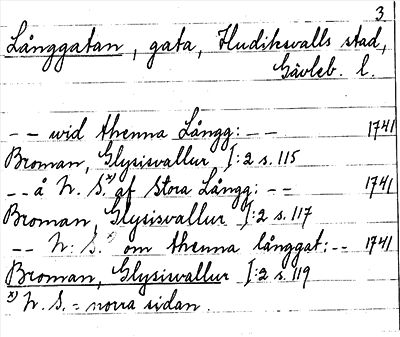 3
Långgatan, gata, Hudiksvalls stad,
Gävleb. l.
-- wid thenna Långg: -- 1741
Broman, Glysisvallur I:2 s. 115
-- å N. S.x) af Stora Långg: -- 1741
Broman, Glysisvallur I:2 s. 117
-- N: S.x) om thenna långgat: -- 1741
Broman, Glysisvallur I:2 s. 119
x) N. S. = norra sidan.